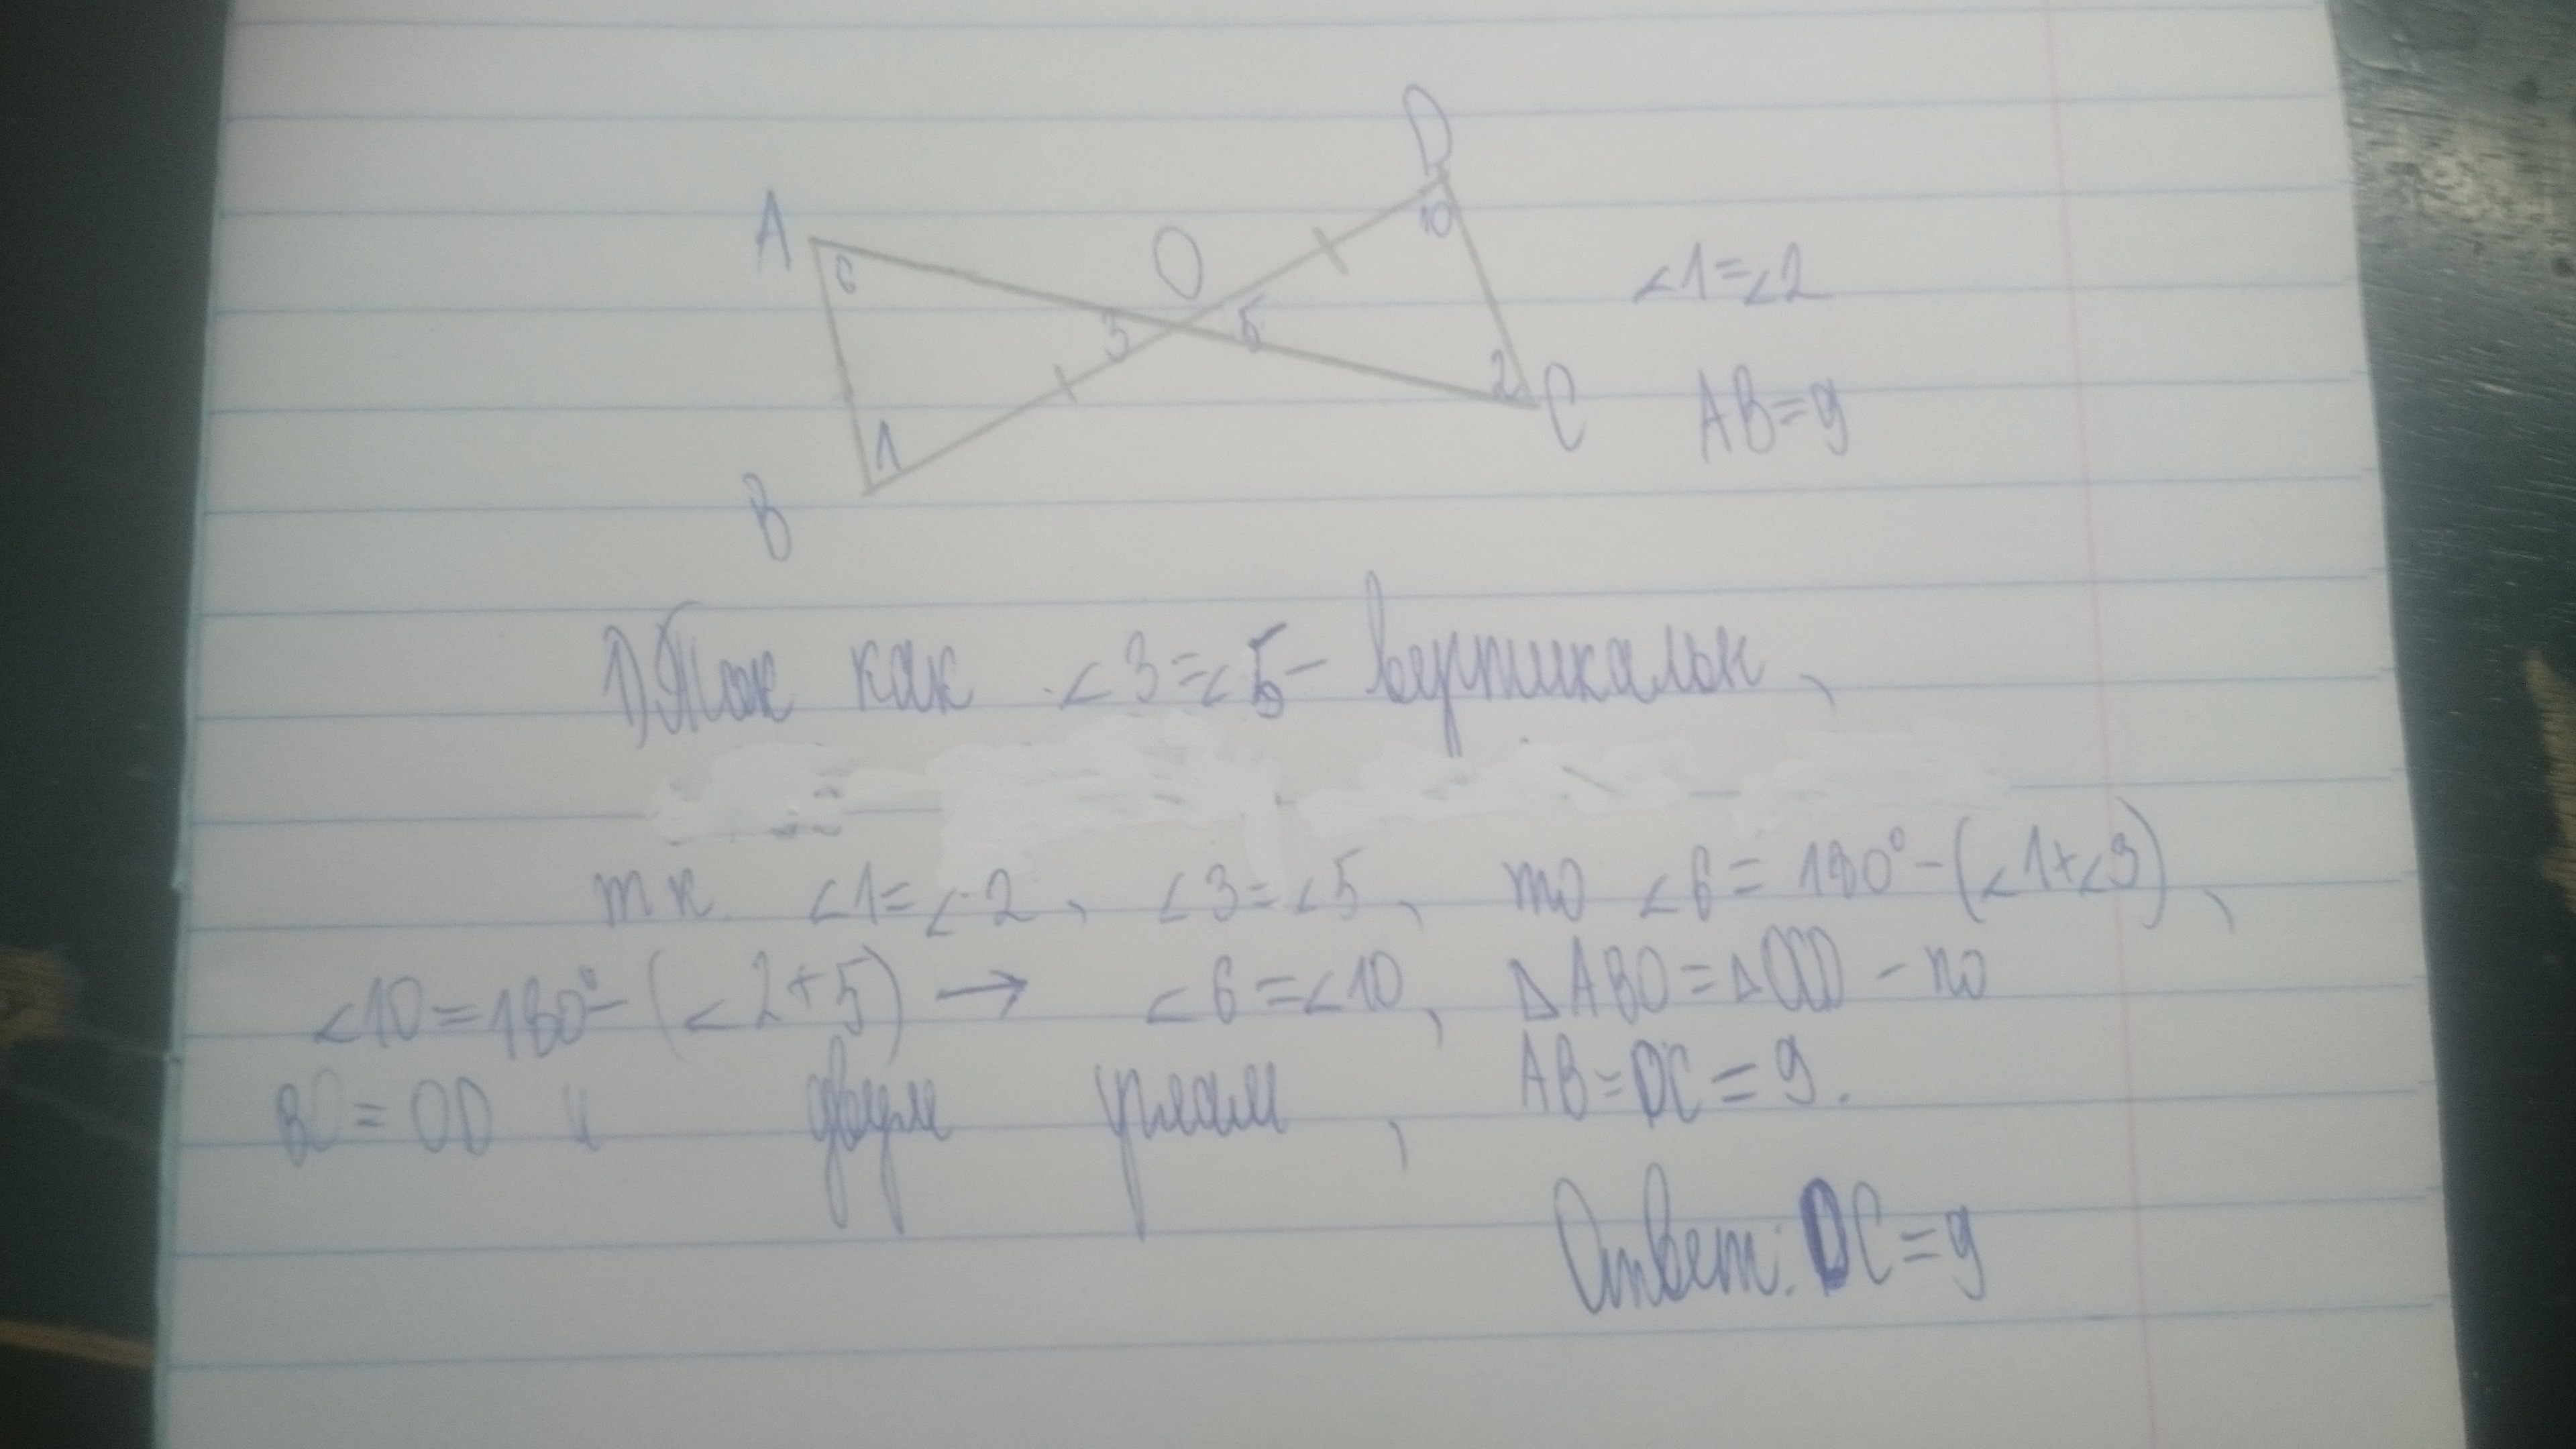 D
A
O
10
6
∠1=∠2
3
5
2
C
AB=9
1
B
1) Так как ∠3=∠5 - вертикальн,
т к ∠1=∠2, ∠3=∠5, то ∠6=180°-(∠1+∠3),
∠10=180°-(∠2+5) → ∠6=∠10, ΔABO=ΔOCD - по
BO=OD и двум углам, AB=DC=9.
Ответ: DC=9